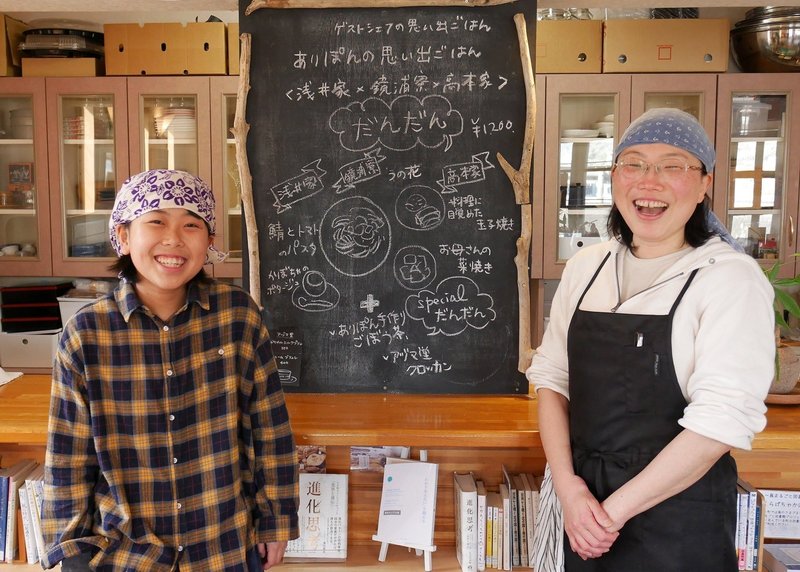 ゲストシェフの思い出ごはん
ありぽんの思い出ごはん
<浅井家×鏡浦寮×高本家>
だんだん
¥1200.
浅井家
鏡浦寮
うの花
高本家
料理に
目覚めた
玉子焼き
鯖とトマト
のパスタ
お母さんの
葉焼き
かぼちゃの
ポタージュ
+
special
だんだん
ありぽん手作り
ごぼう茶
アヅマ堂
クロッカン
進化思
進化思考